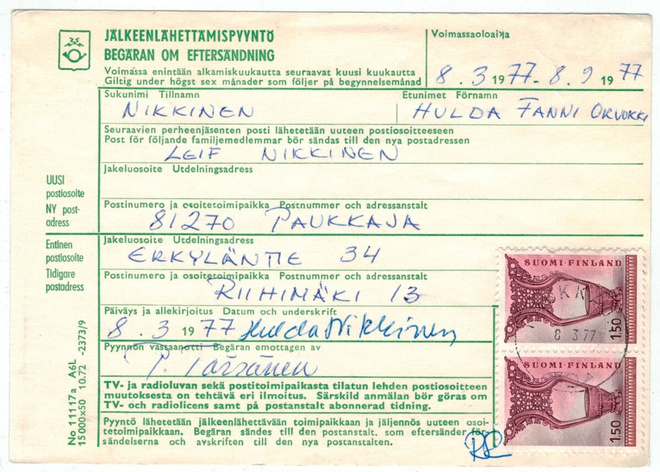 JÄLKEENLÄHETTÄMISPYYNTÖ
BEGÄRAN OM EFTERSÄNDNING
Voimassa enintään alkamiskuukautta seuraavat kuusi kuukautta
Giltig under högst sex månader som följer på begynnelsemånad
Voimassaoloaika
8.3 1977-8.9 1977
Sukunimi Tillnamn
Etunimet Förnamn
NIKKINEN
HULDA FANNI ORVOKKI
Seuraavien perheenjäsenten posti lähetetään uuteen postiosoitteeseen
Post för följande familjemedlemmar bör sändas till den nya postadressen
LEIF NIKKINEN
UUSI
postiosoite
NY post-
adress
Jakeluosoite Utdelningsadress
Postinumero ja osoitetoimipaikka Postnummer och adressanstalt
81270 PAUKKAJA
Entinen
postiosoite
Tidigare
postadress
Jakeluosoite Utdelningsadress
ERKYLÄNTIE 34
Postinumero ja osoitetoimipaikka Postnummer och adressanstalt
RIIHIMÄKI 13
Päiväys ja allekirjoitus Datum och underskrift
8.3 1977 Hulda Nikkinen
Pyynnön vastaanotti Begäran emottagen av
TV- ja radioluvan sekä postitoimipaikasta tilatun lehden postiosoitteen
muutoksesta on tehtävä eri ilmoitus. Särskild anmälan bör göras om
TV- och radiolicens samt på postanstalt abonnerad tidning.
Pyyntö lähetetään jälkeenlähettävään toimipaikkaan ja jäljennös uuteen osoi-
tetoimipaikkaan. Begäran sändes till den postanstalt, som eftersänder för-
sändelserna och avskriften till den nya postanstalten.
No 11117a A6L
15000x50 10.72 -2373/9
SUOMI-FINLAND
1,50
8.3.77
SUOMI-FINLAND
1,50